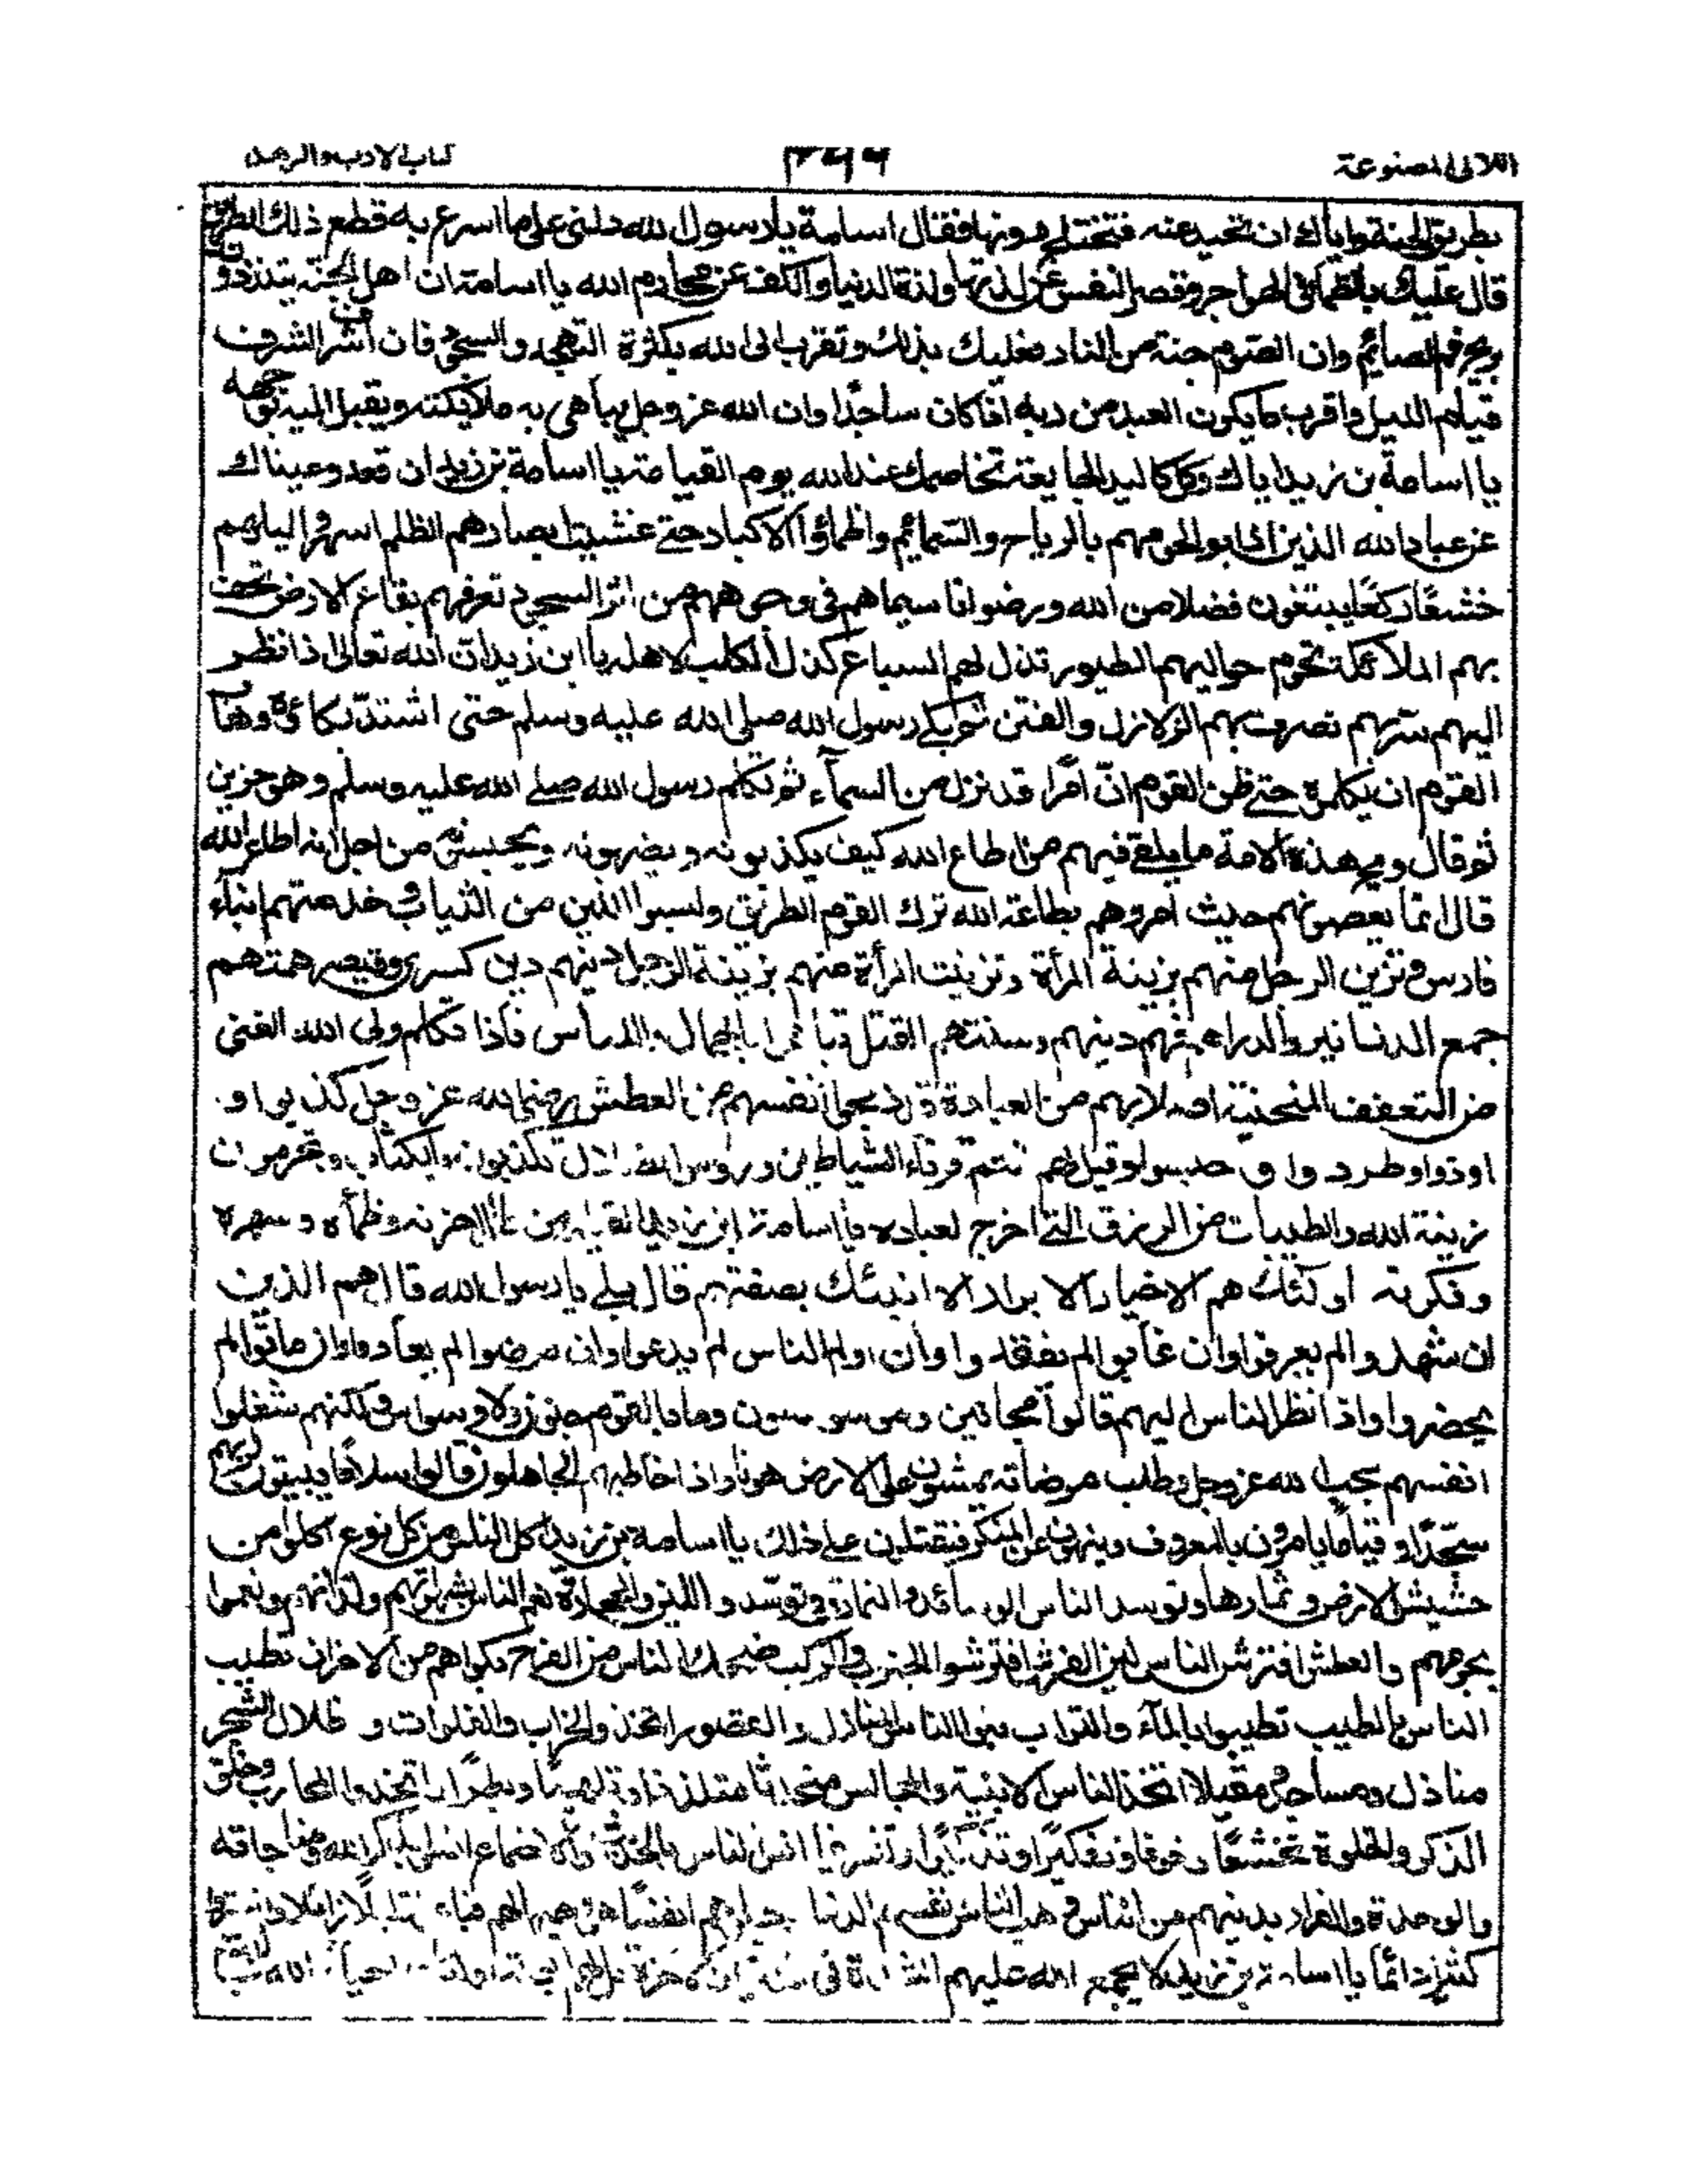 اللآلى المصنوعة ٣٩٩ كتاب الادب والزهد
بطريق الجنة واياك ان تحيد عنه فتختلج دونها فقال اسامة يا رسول الله دلنى على ما اسرع به قطع ذلك الطريق
قال عليك بالظمأ فى الهواجر وقصر النفس عن لذتها ولذة الدنيا والكف عن محارم الله يا اسامة ان اهل الجنة يتلذذون
بريح فم الصائم وان الصوم جنة من النار فعليك بذلك وتقرب الى الله بكثرة التهجد والسجود فان اشرف الشرف
قيام الليل واقرب ما يكون العبد من ربه اذا كان ساجدًا وان الله عز وجل يباهى به ملائكته ويقبل اليه بوجهه
يا اسامة بن زيد اياك وكل كبد جايعة تخاصمك عند الله يوم القيامة يا اسامة بن زيد ان تعدو عيناك
عن عباد الله الذين اذابوا لحومهم بالرياح والسمائم واظماؤا الاكباد حتى غشيت ابصارهم الظلم اسهروا ليلهم
خشعًا ركعًا يبتغون فضلا من الله ورضوانا سيماهم فى وجوههم من اثر السجود تعرفهم بقاع الارض تحف
بهم الملائكة تحوم حواليهم الطيور تذل لهم السباع كذل الكلب لاهله يا ابن زيد ان الله تعالى اذا نظر
اليهم سرّبهم تصرفت بهم الزلازل والفتن ثم بكى رسول الله صلى الله عليه وسلم حتى اشتدّ بكاءه وهاب
القوم ان يكلموه حتى ظن القوم انّ امرًا قد نزل من السمآء ثم تكلم رسول الله صلى الله عليه وسلم وهو حزين
ثم قال ويح هذه الامة ما يلقى فيهم من اطاع الله كيف يكذبونه ويضربونه ويحبسونه من اجل انه اطاع الله
قال انما يعصونهم حيث امروهم بطاعة الله ترك القوم الطريق ولبسوا اللين من الثياب وخدمتهم ابناء
فارس وتزين الرجل منهم بزينة المرأة وتزينت المرأة منهم بزينة الرجل دينهم دين كسرى وقيصر همتهم
جمع الدنانير والدراهم فهم دينهم وسنتهم القتل تباهوا بالجمال واللباس فاذا تكلم ولى الله الغنى
من التعفف المنحنية اصلابهم من العبادة قد ذبحوا انفسهم من العطش رضى الله عز وجل كذبوا و
اوذوا وطردوا وحبسوا وقيل لهم انتم قرناء الشياطين ورؤس الضلال تكذبون بالكتاب وتحرمون
زينة الله والطيبات من الرزق التى اخرج لعباده يا اسامة ابن زيد حزنه وظمأه وسهره
وفكرته اولئك هم الاخيار الابرار الا انبئك بصفتهم قال بلى يا رسول الله قال هم الذين
ان شهدوا لم يعرفوا وان غابوا لم يفتقدوا وان الناس لم يدعوا وان مرضوا لم يعادوا وان ماتوا لم
يحضروا واذا نظر الناس اليهم قالوا مجانين وموسوسون وما بالقوم جنون ولا وسواس ولكنهم شغلوا
انفسهم بحب الله عز وجل وطلب مرضاته يمشون على الارض هونا واذا خاطبهم الجاهلون قالوا سلاما يبيتون لربهم
سجّدًا وقياما يامرون بالمعروف وينهون عن المنكر فيقتلون على ذلك يا اسامة بن زيد اكل الناس من كل نوع اكلوا من
حشيش الارض وثمارها وتوسد الناس الوسائد والنمارق توسّدوا اللبن والحجارة نعم الناس بشهواتهم ولذاتهم ونعموا
بجوعهم والعطش افترش الناس لين الفرش افترشوا الجنوب والركب ضحك الناس من الفرح بكوا هم من الاحزان تطيب
الناس بالطيب تطيبوا بالمآء والتراب بنى الناس المنازل والقصور اتخذوا الخراب والفلوات وظلال الشجر
منازل ومساجد ومقيلا اتخذ الناس الابنية والمجالس متحدثا متلذذا وبطرًا اتخذوا المحاريب وحلق
الذكر والخلوة تخشعًا وخوفا وتفكيرًا انس الناس بالحديث والاجتماع انسوا بذكر الله ومناجاته
والوحدة والفرار بدينهم من الناس وهب الناس انفسهم للدنيا
كثير دائما يا اسامة بن زيد لا يجمع الله عليهم الشدة فى الله